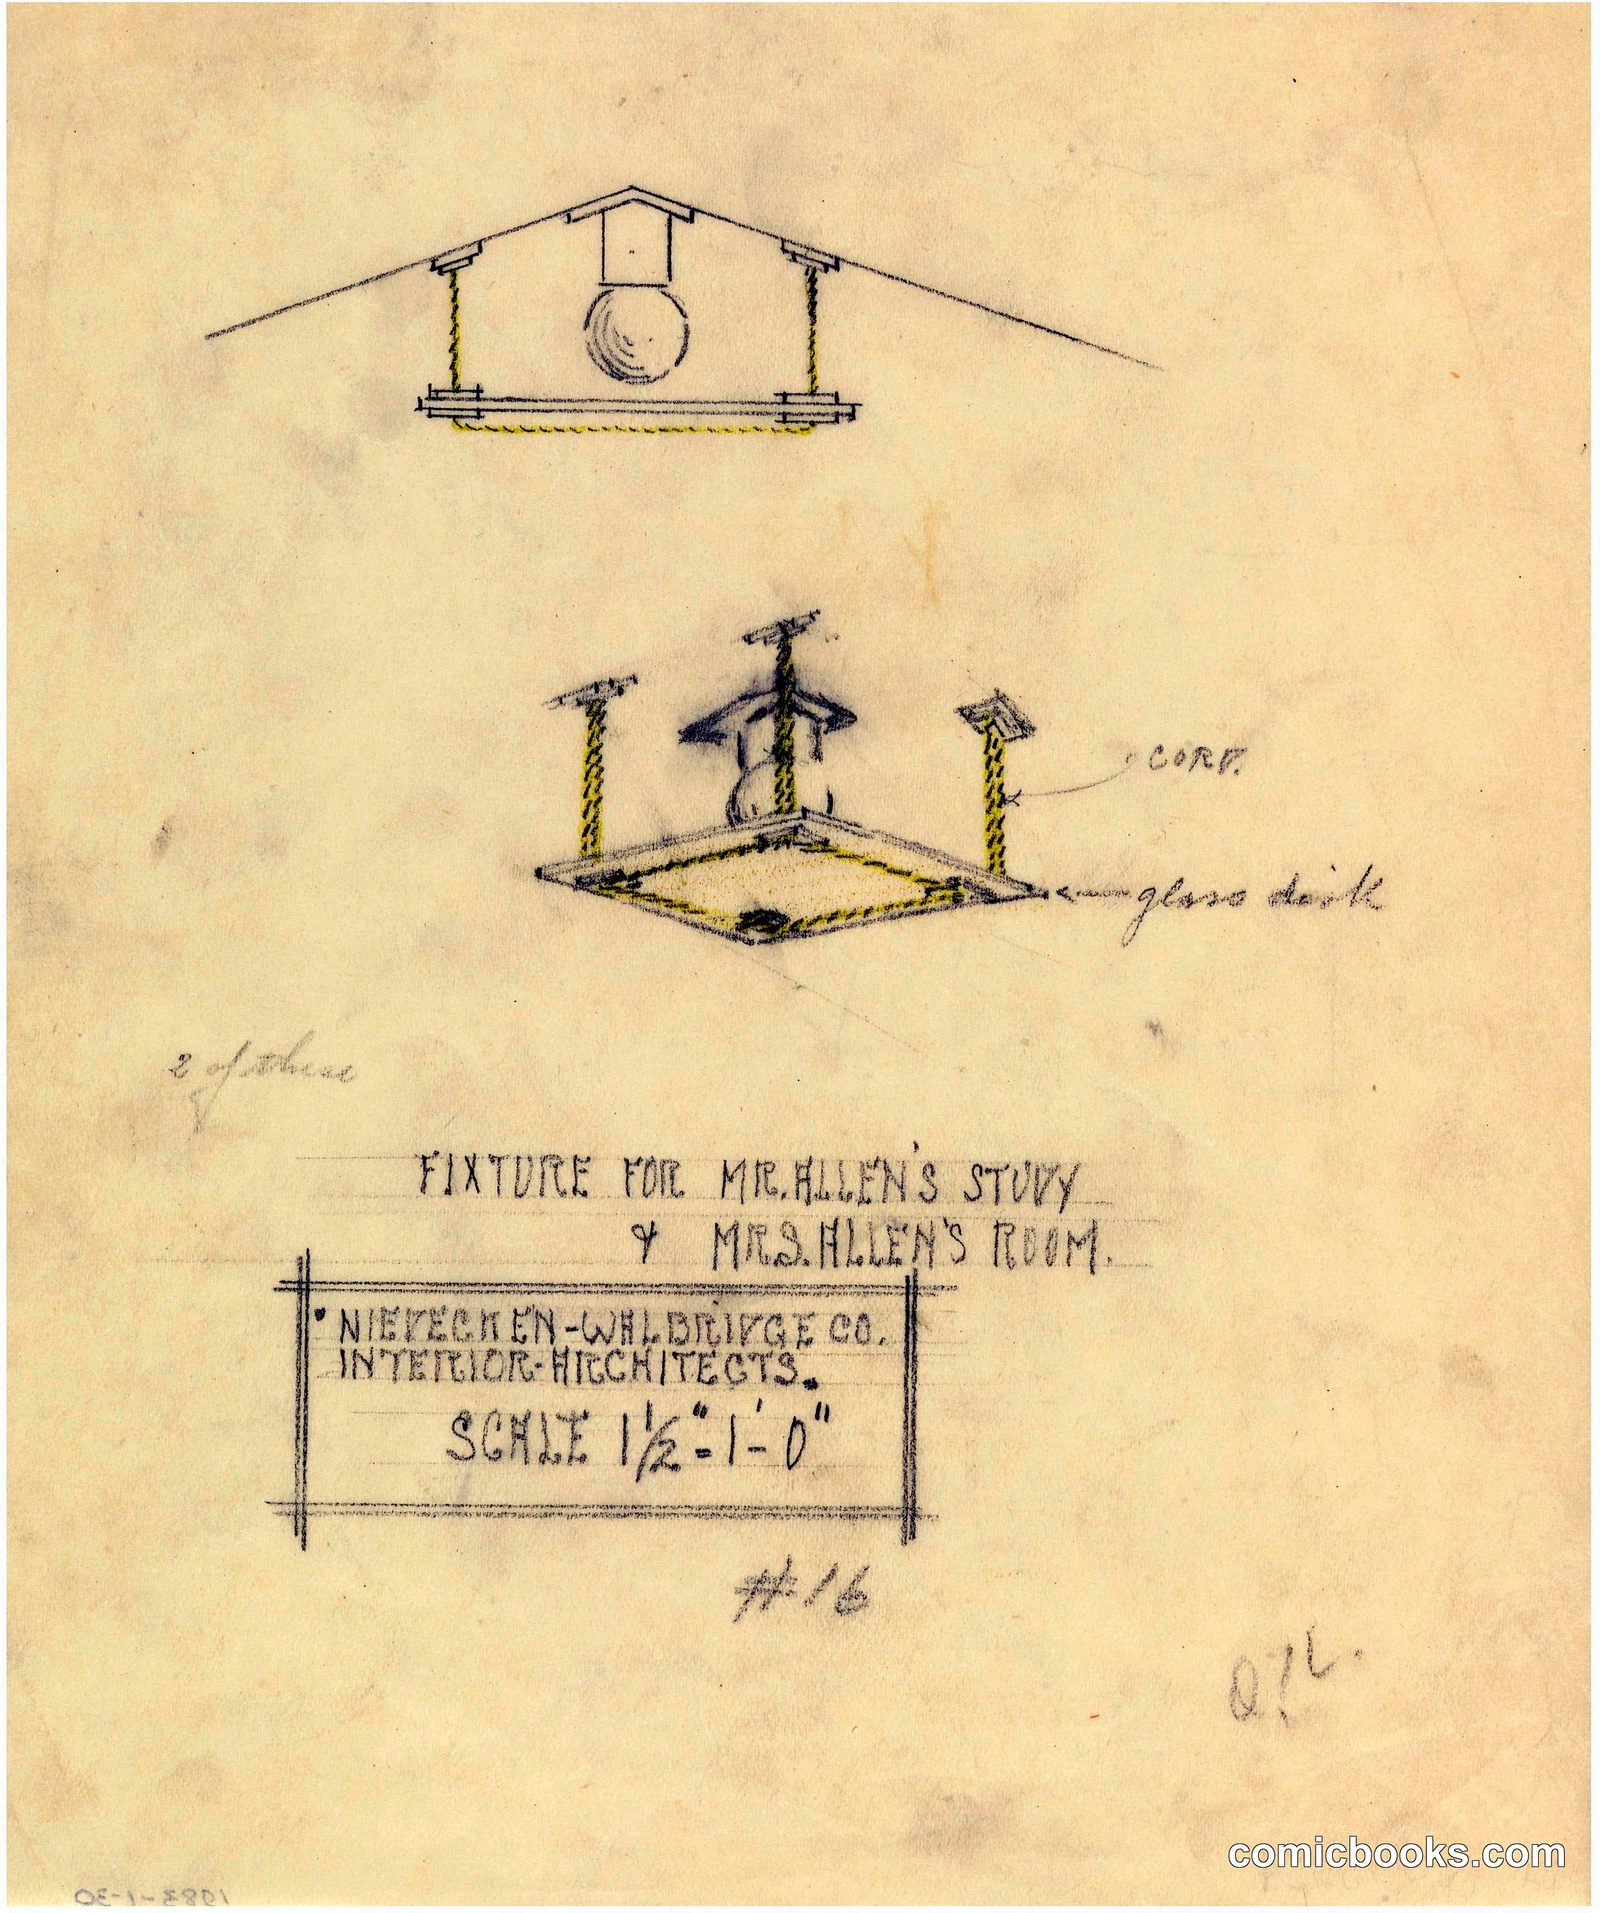 CORD.
glass disk
2 of these
FIXTURE FOR MR. ALLEN'S STUDY
& MRS. ALLEN'S ROOM.
NIEDECKEN-WALBRIDGE CO.
INTERIOR-ARCHITECTS.
SCALE 1 1/2" = 1'-0"
#16
comicbooks.com
1983-1-30